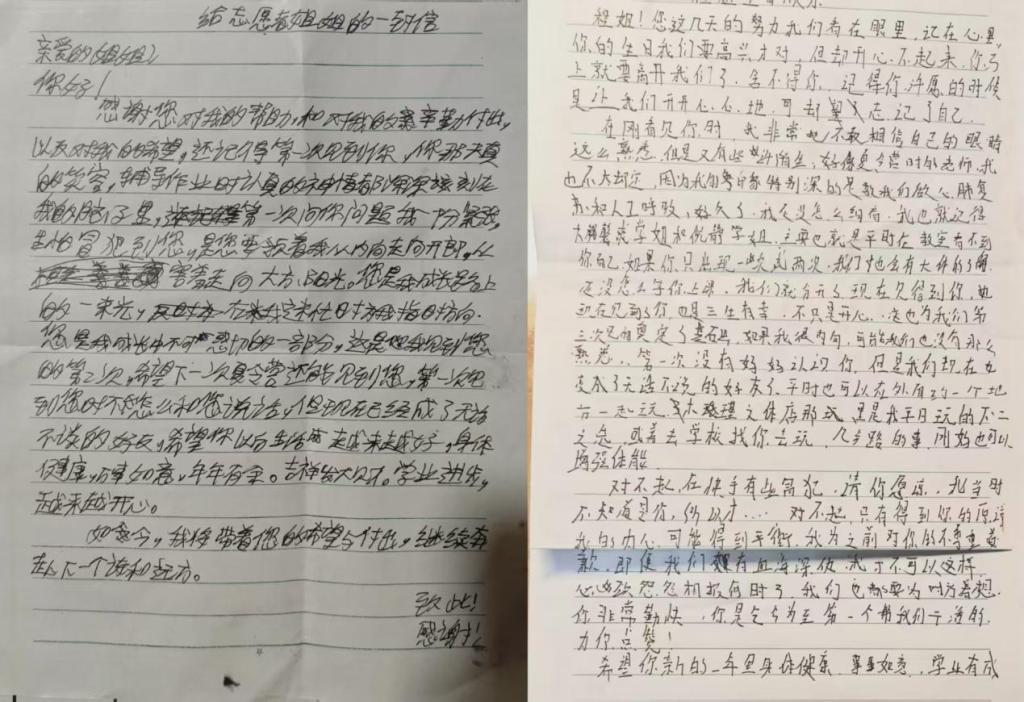 给志愿者姐姐的一封信
亲爱的姐姐：
你好！
感谢您对我的帮助，和对我的辛勤付出，
以及对我的希望，还记得第一次见到你，你那天真
的笑容，辅导作业时认真的神情都深深刻在
我的脑子里，第一次问你问题我十分紧张，
生怕冒犯到您，是您带领着我从内向走向开朗，从
害羞走向大方、阳光。您是我成长路上
的一束光，在我迷茫时为我指明方向.
您是我成长中不可缺的一部分，这是我见到您
的第二次，希望下一次夏令营还能见到您，第一次见
到您时不怎么和您说话，但现在已经成了无话
不谈的好友，希望你以后生活越来越好，身体
健康，万事如意，年年有余。吉祥发大财。学业进步，
越来越开心。
如今，我将带着您的希望与付出，继续奔
赴下一个诗和远方。
致此！
感谢！
程姐！您这几天的努力我们看在眼里，记在心里，
你的生日我们要高兴才对，但却开心不起来，你马
上就要离开我们了，舍不得你，记得你许愿的时候
是让我们开开心心地，可却忘记了自己.
在刚看见你时，我非常不敢相信自己的眼睛
这么熟悉，但是又有些陌生，好像夏令营时的老师，我
也不太却定，因为我的印象特别深的是教我们做心肺复
苏和人工呼吸，好久了，我又没怎么. 我也就记得
学姐和学姐，主要也就是平时在教室看不到
你自己，如果你只出现一次或两次，我们也会有大件的了解
还没怎么与你上课，我们就分开了，现在见得到你，
现在见到了你，也是三生有幸，不只是开心，这也为我们第
三次见面奠定了基石，如果我很内向，可能我们也没有那么
熟悉，第一次没有好好认识你，但是我们现在也
变成了无话不说的好友了，平时也可以在外面约一个地
方一起玩，书店那或是我平日玩的不二
之处，或者去学校找你去玩，几步路的事，刚好也可以
增强体能.
对不起，在快手有些冒犯，请你愿谅，我当时
不知道是你，所以才.... 对不起，只有得到你的原谅
我的内心可能得到平衡，我为之前对你的不尊重道
歉，即使我们有血海深仇，我才不可以这样
冤冤相报何时了，我们也都要为对方着想.
你非常勤快，你是迄今为至第一个帮我们的.
为你点赞！
希望你新的一年里身体健康，事事如意，学业有成